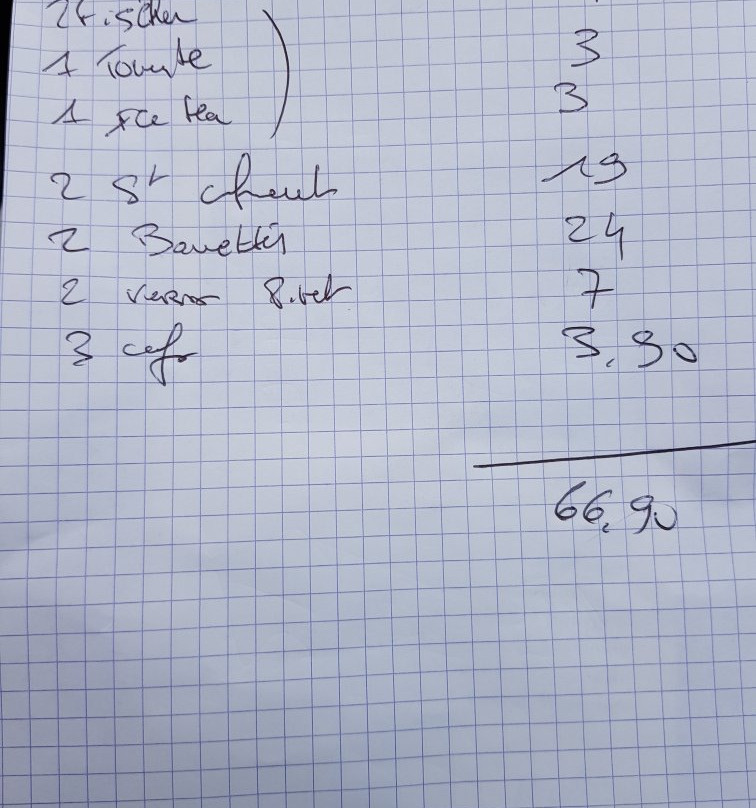 2 Fischer
1 Tomate 3
1 Ice tea 3
2 St 19
2 Bavettes 24
2 verres 7
3 cafe 3,90
66,90